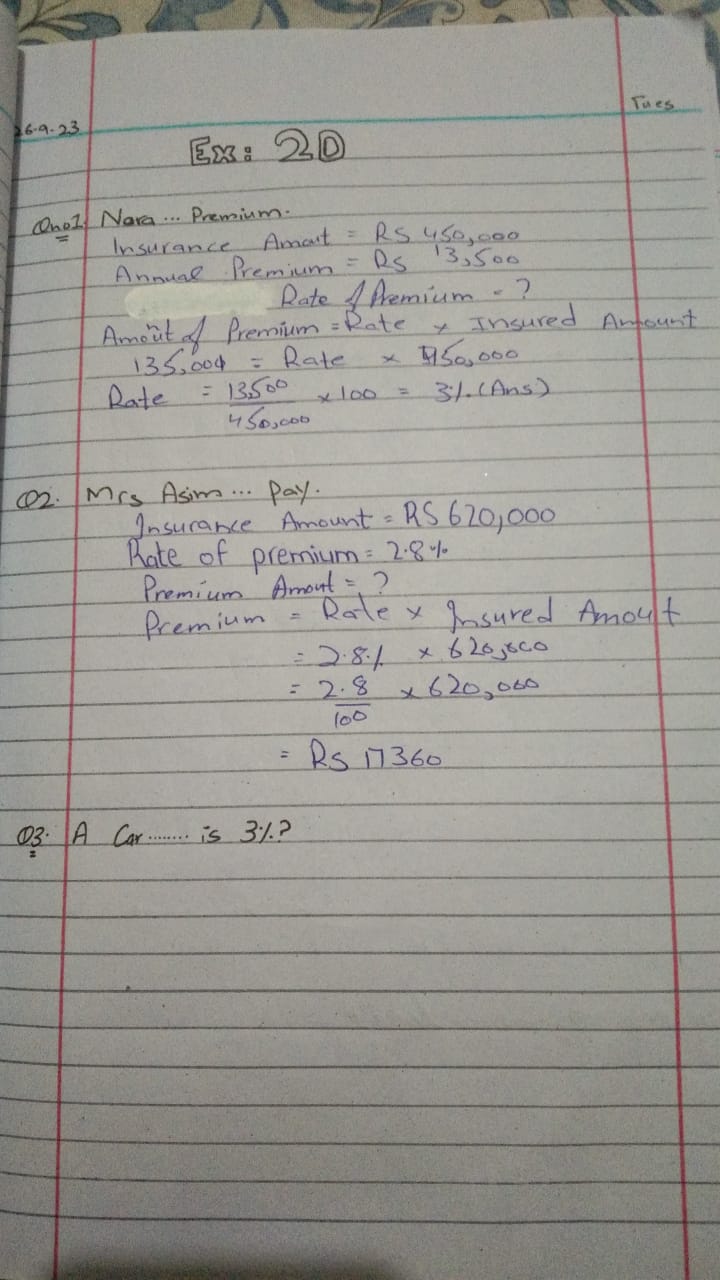 Tues
26-9-23
Ex: 2D
Qno1. Nara ... Premium.
Insurance Amout = RS 450,000
Annual Premium = Rs 13,500
Rate of Premium = ?
Amout of Premium = Rate x Insured Amount
135,000 = Rate x 450,000
Rate = 13,500 x 100 = 3%. (Ans)
450,000
Q2. Mrs Asim ... Pay.
Insurance Amount = RS 620,000
Rate of premium = 2.8%
Premium Amout = ?
Premium = Rate x Insured Amout
= 2.8% x 620,000
= 2.8 x 620,000
100
= Rs 17360
Q3. A Car ........ is 3%?